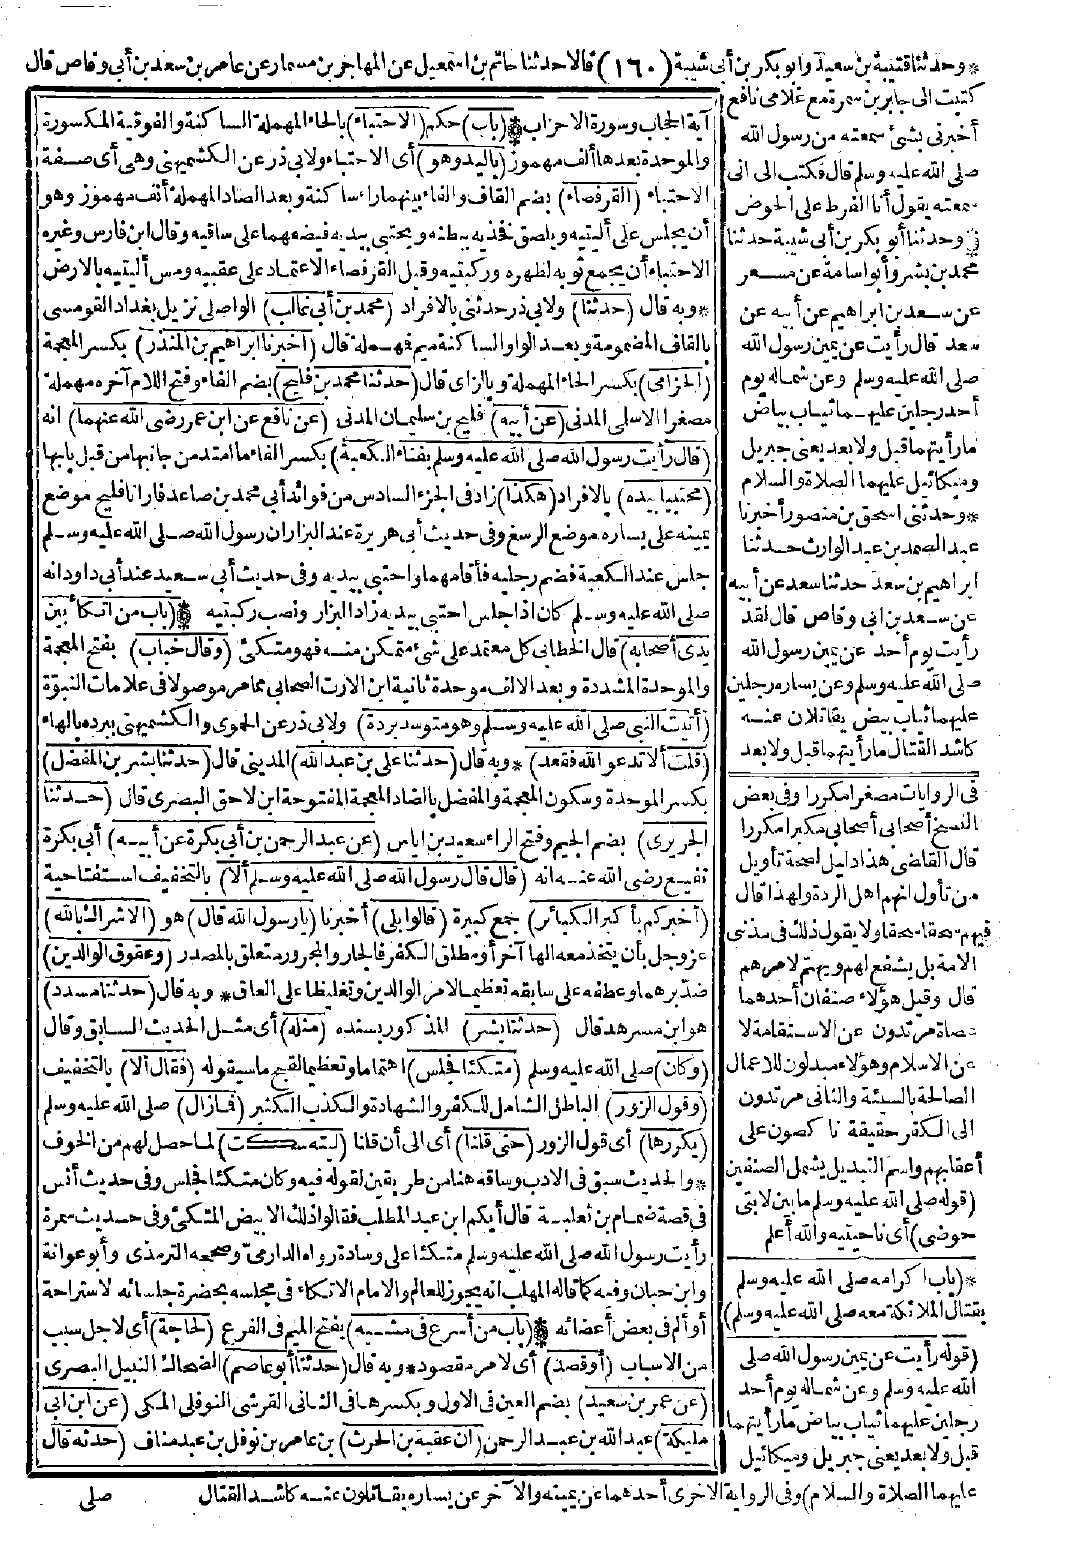 * وحدثنا قتيبة بن سعيد وابو بكر بن أبى شيبة (١٦٠) قالا حدثنا حاتم بن اسمعيل عن المهاجر بن مسمار عن عامر بن سعد بن أبى وقاص قال
كتبت الى جابر بن سمرة مع غلامى نافع
أخبرنى بشئ سمعته من رسول الله
صلى الله عليه وسلم قال فكتب الى انى
سمعته يقول أنا الفرط على الحوض
وحدثنا أبو بكر بن أبى شيبة حدثنا
محمد بن بشر وأبو اسامة عن مسعر
عن سعد بن ابراهيم عن أبيه عن
سعد قال رأيت عن يمين رسول الله
صلى الله عليه وسلم وعن شماله يوم
أحد رجلين عليهما ثياب بياض
ما رأيتهما قبل ولا بعد يعنى جبريل
وميكائيل عليهما الصلاة والسلام
* وحدثنى اسحق بن منصور أخبرنا
عبد الصمد بن عبد الوارث حدثنا
ابراهيم بن سعد حدثنا سعد عن أبيه
عن سعد بن ابى وقاص قال لقد
رأيت يوم أحد عن يمين رسول الله
صلى الله عليه وسلم وعن يساره رجلين
عليهما ثياب بيض يقاتلان عنه
كاشد القتال ما رأيتهما قبل ولا بعد
فى الروايات مصغرا مكررا وفى بعض
النسخ أصحابى أصحابى مكبرا مكررا
قال القاضى هذا دليل لصحة تأويل
من تأول انهم اهل الردة ولهذا قال
فيهم سحقا سحقا ولا يقول ذلك فى مذنبى
الامة بل يشفع لهم ويهتم لامرهم
قال وقيل هؤلاء صنفان أحدهما
عصاة مرتدون عن الاستقامة لا
عن الاسلام وهؤلاء مبدلون للاعمال
الصالحة بالسيئة والثانى مرتدون
الى الكفر حقيقة ناكصون على
أعقابهم واسم التبديل يشمل الصنفين
(قوله صلى الله عليه وسلم ما بين لابتى
حوضى) أى ناحيتيه والله أعلم
* (باب اكرامه صلى الله عليه وسلم
بقتال الملائكة معه صلى الله عليه وسلم)
(قوله رأيت عن يمين رسول الله صلى
الله عليه وسلم وعن شماله يوم أحد
رجلين عليهما ثياب بياض ما رأيتهما
قبل ولا بعد يعنى جبريل وميكائيل
عليهما الصلاة والسلام) وفى الرواية الاخرى أحدهما عن يمينه والآخر عن يساره يقاتلون عنه كاشد القتال
آية الحجاب وسورة الاحزاب * (باب) حكم (الاحتباء) بالحاء المهملة الساكنة والفوقية المكسورة
والموحدة بعدها ألف مهموز (باليد وهو) أى الاحتباء ولابى ذر عن الكشميهنى وهى أى صفة
الاحتباء (القرفصاء) بضم القاف والفاء بينهما راء ساكنة وبعد الصاد المهملة ألف مهموز وهو
أن يجلس على أليتيه ويلصق فخذيه ببطنه ويحتبى بيديه فيضعهما على ساقيه وقال ابن فارس وغيره
الاحتباء أن يجمع ثوبه لظهره وركبتيه وقيل القرفصاء الاعتماد على عقبيه ومس أليتيه بالارض
* وبه قال (حدثنا) ولابى ذر حدثنى بالافراد (محمد بن أبى غالب) الواصلى نزيل بغداد القومسى
بالقاف المضمومة وبعد الواو الساكنة ميم فمهملة قال (اخبرنا ابراهيم بن المنذر) بكسر المعجمة
(الحزامى) بكسر الحاء المهملة وبالزاى قال (حدثنا محمد بن فليح) بضم الفاء وفتح اللام آخره مهملة
مصغرا الاسلمى المدنى (عن أبيه) فليح بن سليمان المدنى (عن نافع عن ابن عمر رضى الله عنهما) انه
(قال رأيت رسول الله صلى الله عليه وسلم بفناء الكعبة) بكسر الفاء ما امتد من جانبها من قبل بابها
(محتبيا بيده) بالافراد (هكذا) زاد فى الجزء السادس من فوائد أبى محمد بن صاعد فأرانا فليح موضع
يمينه على يساره موضع الرسغ وفى حديث أبى هريرة عند البزار ان رسول الله صلى الله عليه وسلم
جلس عند الكعبة فضم رجليه فأقامهما واحتبى بيديه وفى حديث أبى سعيد عند أبى داود انه
صلى الله عليه وسلم كان اذا جلس احتبى بيديه زاد البزار ونصب ركبتيه * (باب من اتكأ بين
يدى أصحابه) قال الخطابى كل معتمد على شئ متمكن منه فهو متكئ (وقال خباب) بفتح المعجمة
والموحدة المشددة وبعد الالف موحدة ثانية ابن الارت الصحابى مما مر موصولا فى علامات النبوة
(أتيت النبى صلى الله عليه وسلم وهو متوسد بردة) ولابى ذر عن الحموى والكشميهنى ببرده بالهاء
(قلت ألا تدعو الله فقعد) * وبه قال (حدثنا على بن عبد الله) المدينى قال (حدثنا بشر بن المفضل)
بكسر الموحدة وسكون المعجمة والمفضل بالضاد المعجمة المفتوحة ابن لاحق البصرى قال (حدثنا
الجريرى) بضم الجيم وفتح الراء سعيد بن اياس (عن عبد الرحمن بن أبى بكرة عن أبيه) أبى بكرة
نفيع رضى الله عنه انه (قال قال رسول الله صلى الله عليه وسلم ألا) بالتخفيف استفتاحية
(أخبركم بأكبر الكبائر) جمع كبيرة (قالوا بلى) أخبرنا (يا رسول الله قال) هو (الاشراك بالله)
عز وجل بأن يتخذ معه الها آخر أو مطلق الكفر فالجار والمجرور متعلق بالمصدر (وعقوق الوالدين)
ضد برهما وعطفه على سابقه تعظيما لامر الوالدين وتغليظا على العاق * وبه قال (حدثنا مسدد)
هو ابن مسرهد قال (حدثنا بشر) المذكور بسنده (مثله) أى مثل الحديث السابق وقال
(وكان) صلى الله عليه وسلم (متكئا فجلس) اهتماما وتعظيما لقبح ما سيقوله (فقال ألا) بالتخفيف
(وقول الزور) الباطل الشامل للكفر والشهادة والكذب الكثير (فما زال) صلى الله عليه وسلم
(يكررها) أى قول الزور (حتى قلنا) أى الى أن قلنا (ليته سكت) لما حصل لهم من الخوف
* والحديث سبق فى الادب وساقه هنا من طريقين لقوله فيه وكان متكئا فجلس وفى حديث أنس
فى قصة ضمام بن ثعلبة قال أيكم ابن عبد المطلب فقالوا ذلك الابيض المتكئ وفى حديث سمرة
رأيت رسول الله صلى الله عليه وسلم متكئا على وسادة رواه الدارمى وصححه الترمذى وأبو عوانة
وابن حبان وفيه كما قاله المهلب انه يجوز للعالم والامام الاتكاء فى مجلسه بحضرة جلسائه لاستراحة
أو ألم فى بعض أعضائه * (باب من أسرع فى مشيه) بفتح الميم فى الفرع (لحاجة) أى لاجل سبب
من الاسباب (أو قصد) أى لامر مقصود * وبه قال (حدثنا أبو عاصم) الضحاك النبيل البصرى
(عن عمر بن سعيد) بضم العين فى الاول وبكسرها فى الثانى القرشى النوفلى المكى (عن ابن أبى
مليكة) عبد الله بن عبد الرحمن (ان عقبة بن الحرث) بن عامر بن نوفل بن عبد مناف (حدثه قال
صلى